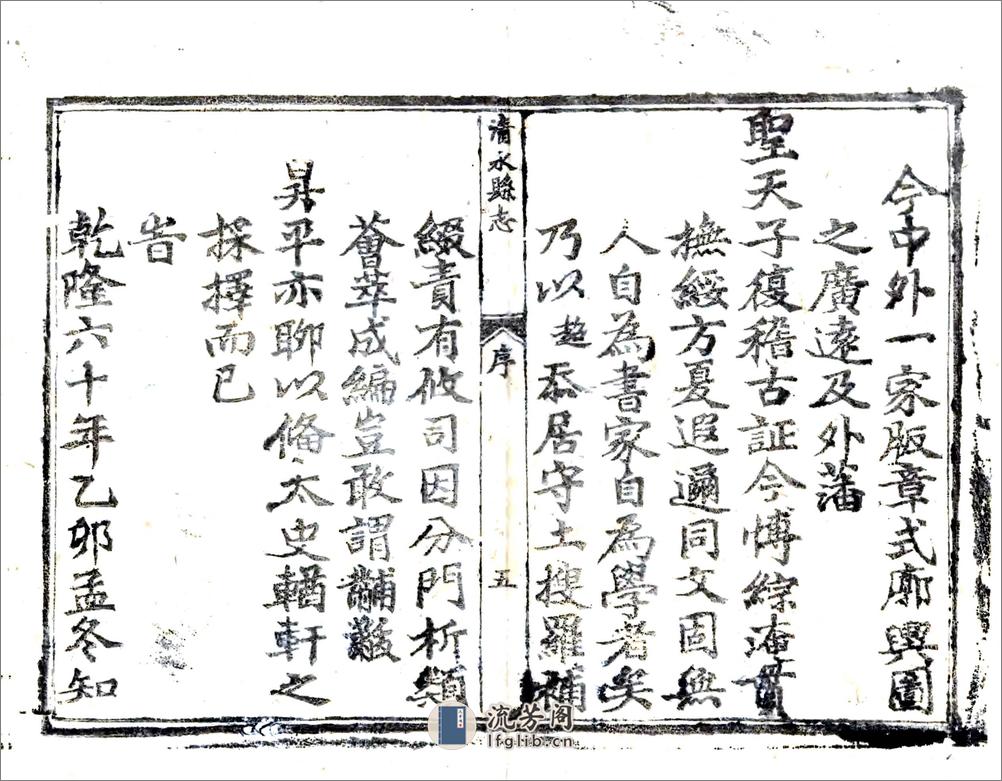 今中外一家版章式廓輿圖
之廣遠及外藩
聖天子復稽古証今博綜淹貫
撫綏方夏遐邇同文固無
人自為書家自為學者矣
乃以超忝居守土搜羅補
清水縣志
序
五
綴責有攸司因分門析類
薈萃成編豈敢謂黼黻
昇平亦聊以備太史輶軒之
採擇而已
旹
乾隆六十年乙卯孟冬知
流芳阁
lfglib.cn